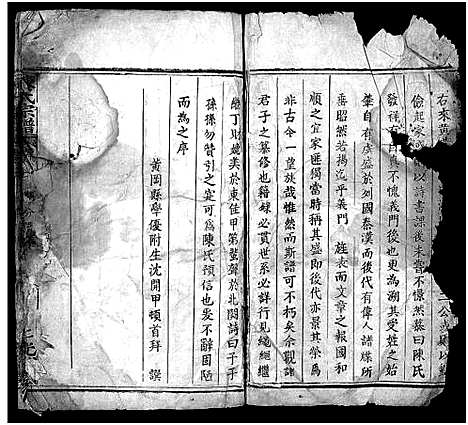 右來黃
二公出處以
儉起家以詩書課後未嘗不憬然慕曰陳氏
發祥有自真不愧義門後也更為溯其受姓之始
肇自有虞盛於列國秦漢而後代有偉人諸牒所
垂昭然若揭迄乎義門旌表而文章之報國和
順之宜家匪獨當時稱其盛即後代亦景其榮焉
非古今一望族哉惟然而斯譜可不朽矣佘觀諸
君子之纂修也籍錄必貫世系必詳行見繩繩繼
繼丁財媲美於東佳甲第蜚聲於北闕詩曰子子
孫孫勿替引之寔可為陳氏預信也爰不辭固陋
而為之序
黃岡縣學優附生沈開甲頓首拜 譔
氏宗譜